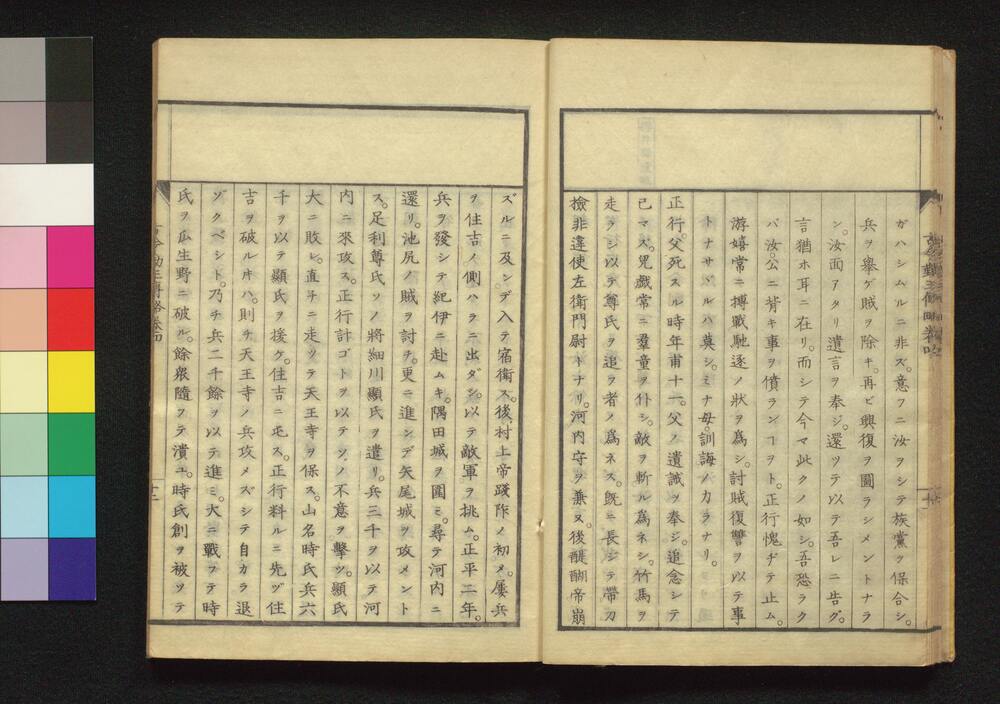 ガハシムルニ非ズ。意フニ汝ヲシテ族黨ヲ保合シ。
兵ヲ擧ゲ賊ヲ除キ。再ビ興復ヲ圖ラシメントナラ
ン。汝面アタリ遺言ヲ奉ジ。還ツテ以テ吾レニ告グ。
言猶ホ耳ニ在リ。而シテ今マ此クノ如シ。吾恐ラク
バ汝。公ニ背キ事ヲ僨ランヿヲト。正行愧ヂテ止ム。
游嬉常ニ搏戰馳逐ノ狀ヲ爲シ。討賊復讐ヲ以テ事
トナサヾルハ莫シ。ミナ母。訓誨ノカラナリ。
正行。父死スル時年甫十一。父ノ遺誡ヲ奉ジ。追念シテ
已マズ。兒戯常ニ羣童ヲ仆シ。敵ヲ斬ルノ爲ネシ。竹馬ヲ
走ラシ以テ尊氏ヲ追フ者ノ爲ネス。旣ニ長ジテ帶刀
撿非違使左衛門尉トナリ。河内守ヲ兼ヌ。後醍醐帝崩
ズルニ及ンデ入テ宿衛ス。後村上帝踐阼ノ初メ。屢兵
ヲ住吉ノ側ハラニ出ダシ。以テ敵軍ヲ挑ム。正平二年。
兵ヲ發シテ紀伊ニ赴ムキ。隅田城ヲ圍ミ。尋テ河内ニ
還リ。池尻ノ賊ヲ討チ。更ニ進シデ矢尾城ヲ攻メント
ス。足利尊氏ソノ將細川顯氏ヲ遣リ。兵三千ヲ以テ河
内ニ來攻ス。正行計ゴトヲ以テソノ不意ヲ擊ツ。顯氏
大ニ敗レ。直チニ走ツテ天王寺ヲ保ス。山名時氏兵六
千ヲ以テ顯氏ヲ援ケ。住吉ニ屯ス。正行料ルニ先ヅ住
吉ヲ破ルキハ。則チ天王寺ノ兵攻メズシテ自カラ退
ゾクベシト。乃チ兵二千餘ヲ以テ進ミ。大ニ戰ツテ時
氏ヲ瓜生野ニ破ル。餘衆隨ツテ潰ユ。時氏創ヲ被ツテ